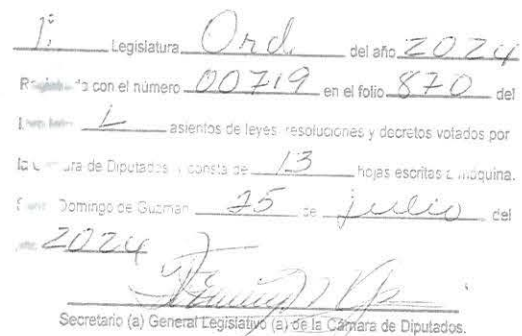 1ª Legislatura Ord. del año 2024
con el número 00719 en el folio 870 del
L asientos de leyes, resoluciones y decretos votados por
la Cámara de Diputados y consta de 13 hojas escritas a máquina.
Domingo de Guzmán 25 de julio del
2024
Secretario (a) General Legislativo (a) de la Cámara de Diputados.